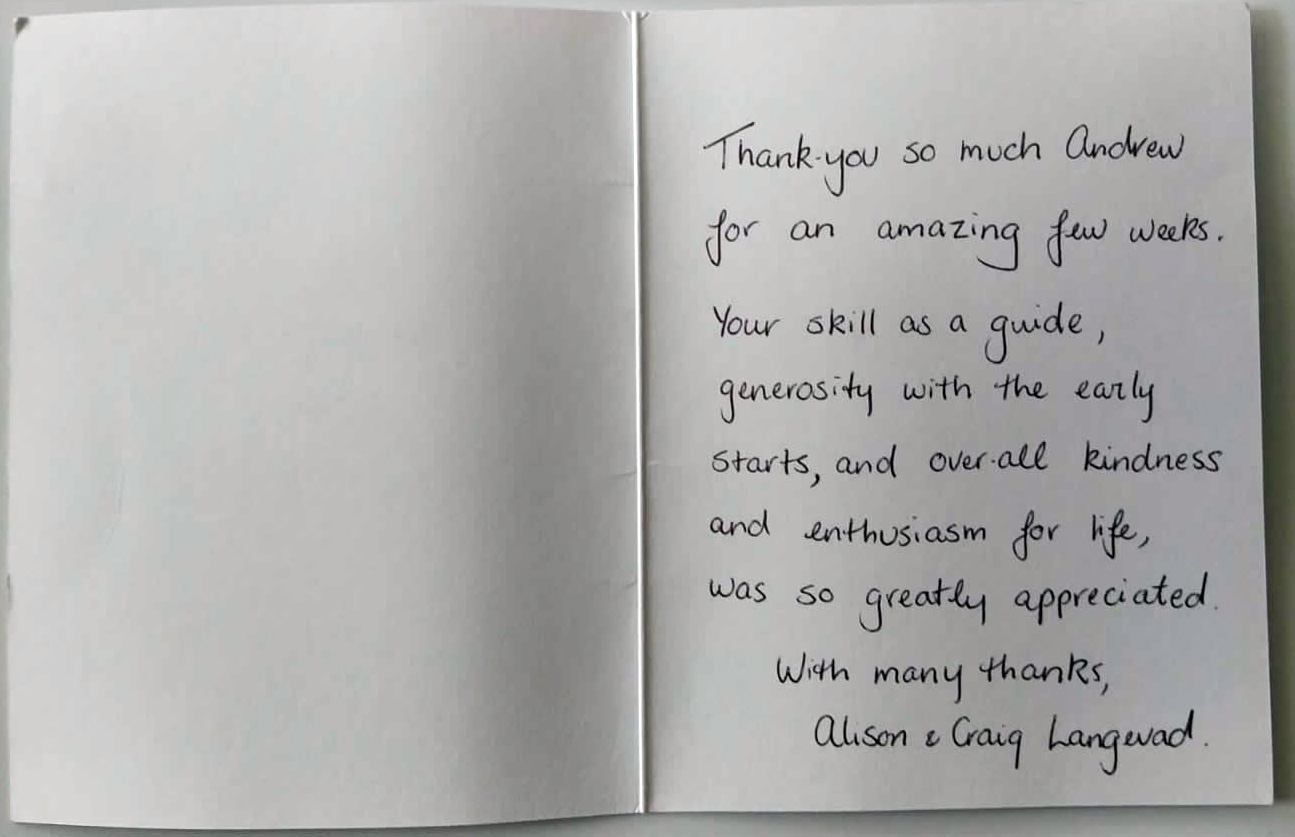 Thank-you so much Andrew
for an amazing few weeks.
Your skill as a guide,
generosity with the early
starts, and over-all kindness
and enthusiasm for life,
was so greatly appreciated.
With many thanks,
Alison & Craig Langevad.